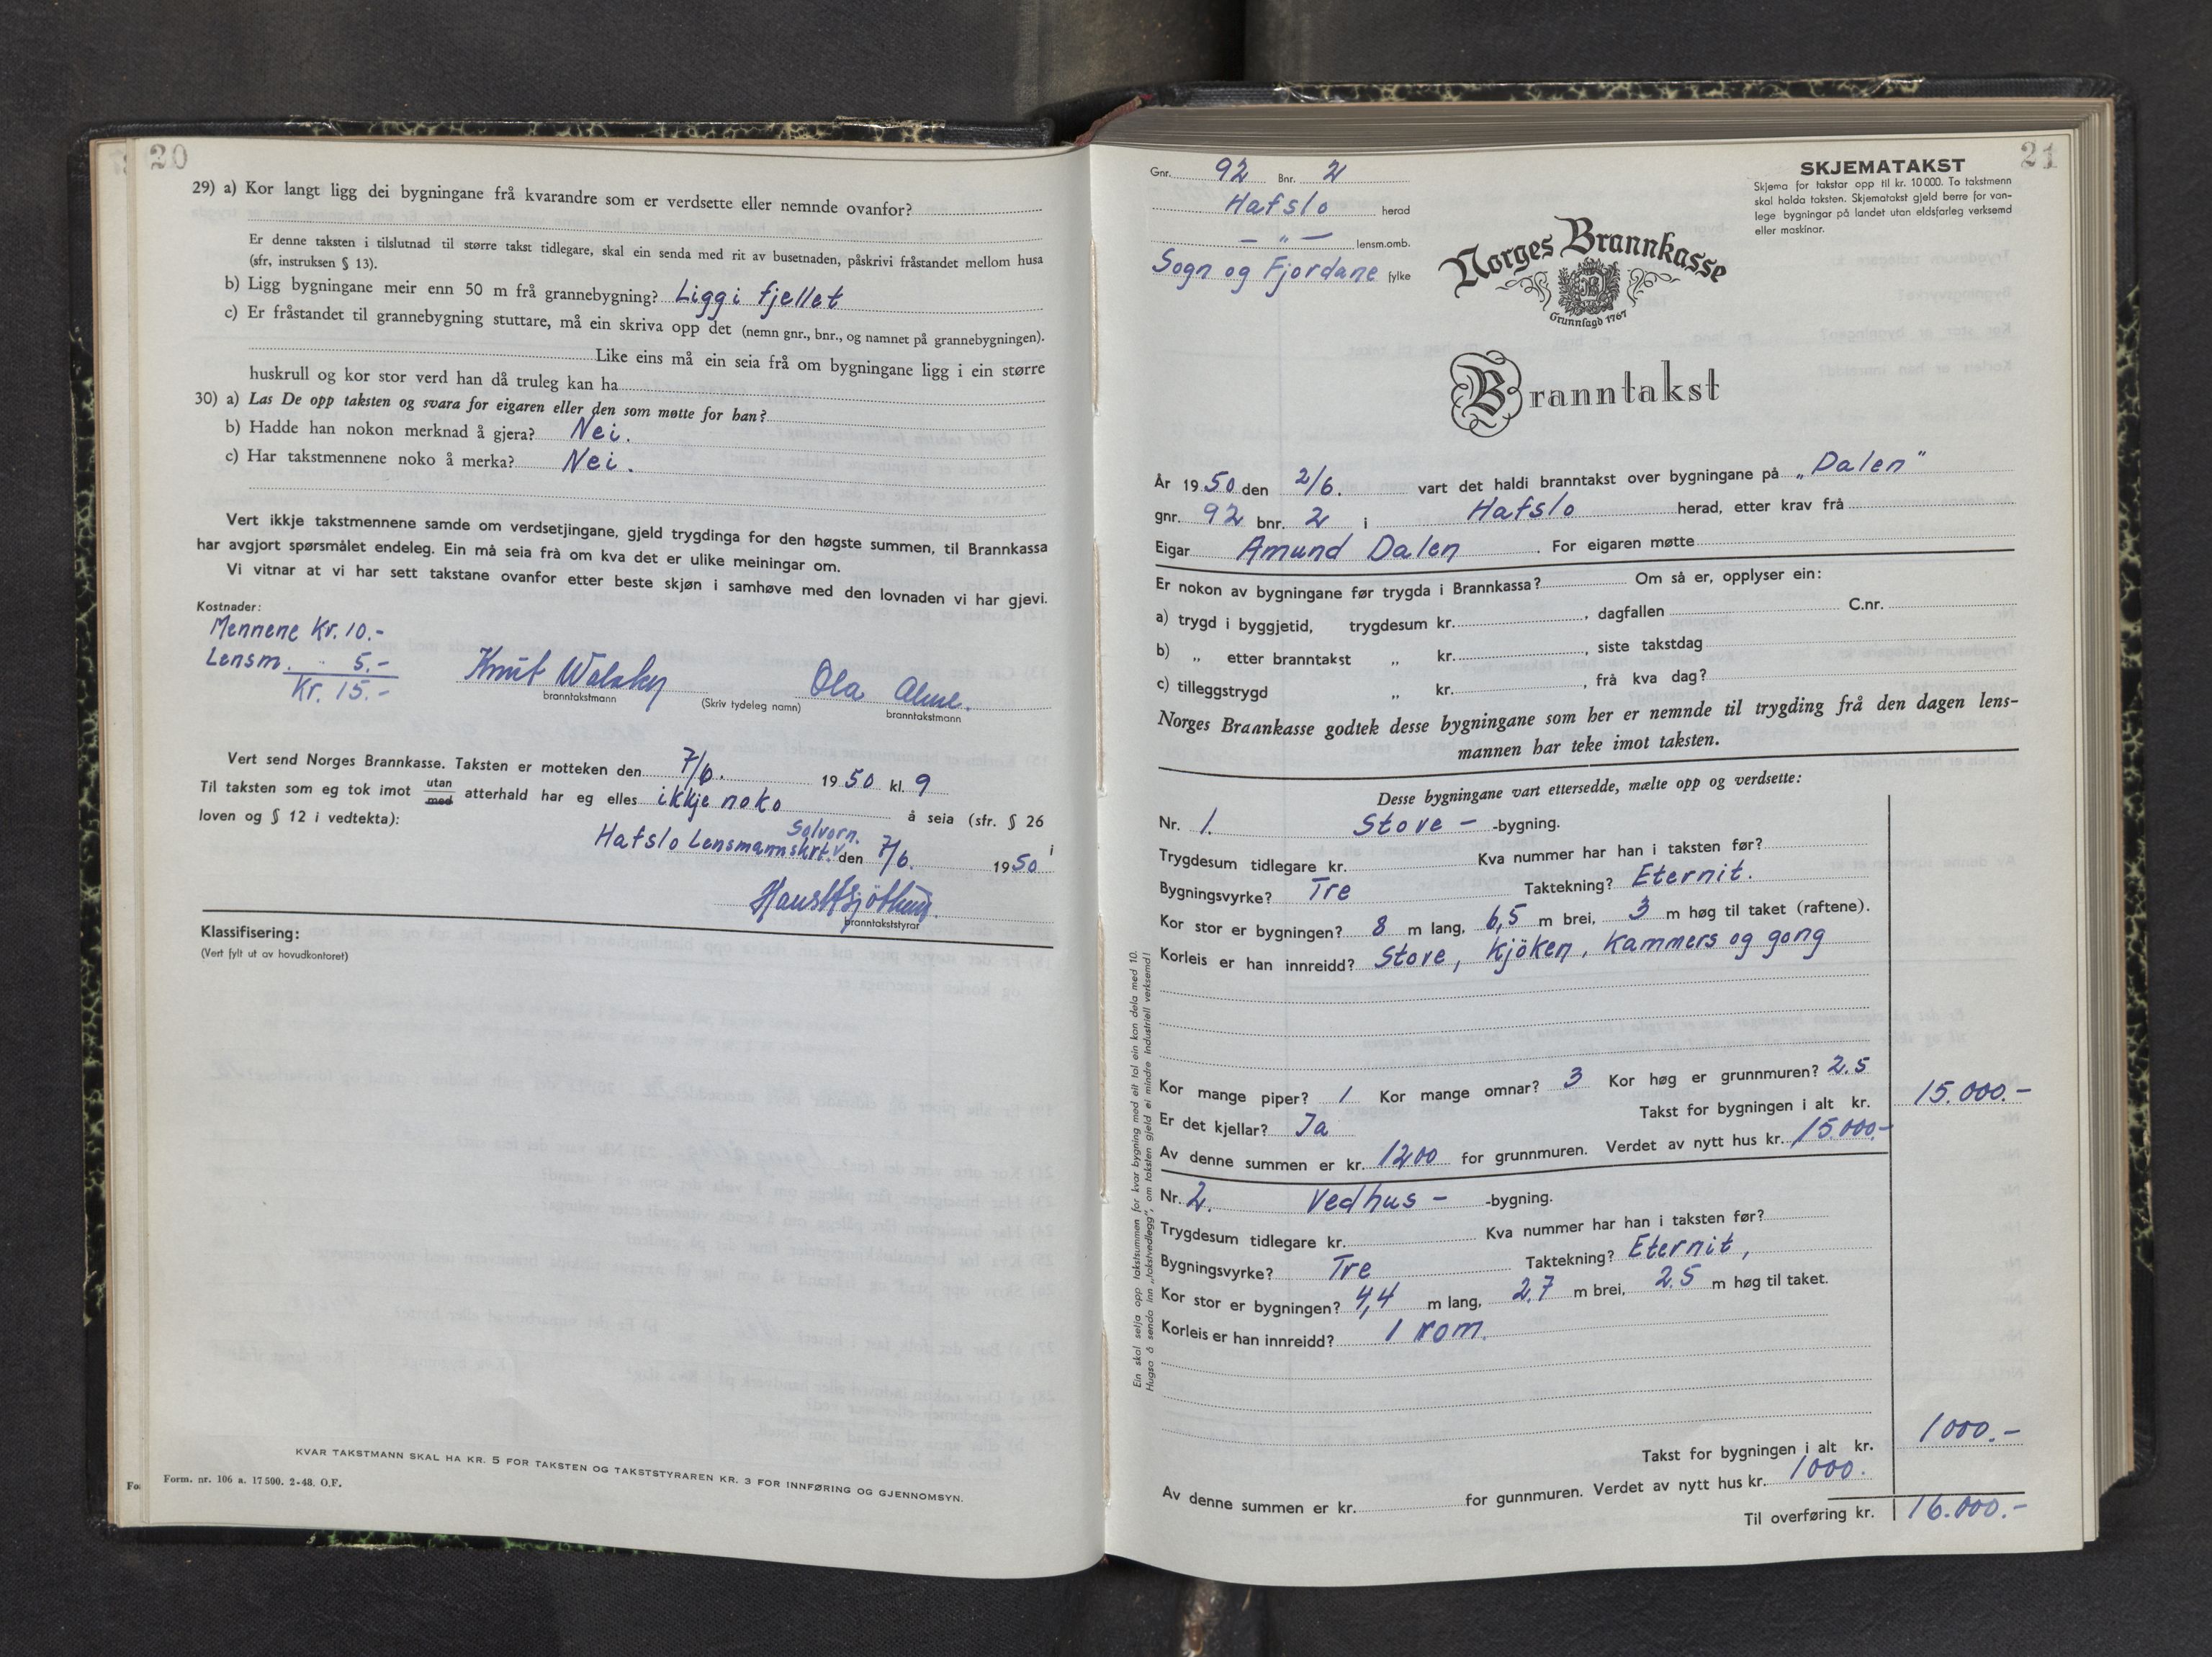 20
29) a) Kor langt ligg dei bygningane frå kvarandre som er verdsette eller nemnde ovanfor?
Er denne taksten i tilslutnad til større takst tidlegare, skal ein senda med rit av busetnaden, påskrivi fråstandet mellom husa
(sfr, instruksen § 13).
b) Ligg bygningane meir enn 50 m frå grannebygning? Ligg i fjellet
c) Er fråstandet til grannebygning stuttare, må ein skriva opp det (nemn gnr., bnr., og namnet på grannebygningen).
Like eins må ein seia frå om bygningane ligg i ein større
huskrull og kor stor verd han då truleg kan ha
30) a) Las De opp taksten og svara for eigaren eller den som møtte for han?
b) Hadde han nokon merknad å gjera? Nei.
c) Har takstmennene noko å merka? Nei.
Vert ikkje takstmennene samde om verdsetjingane, gjeld trygdinga for den høgste summen, til Brannkassa
har avgjort spørsmålet endeleg. Ein må seia frà om kva det er ulike meiningar om.
Vi vitnar at vi har sett takstane ovanfor etter beste skjøn i samhøve med den lovnaden vi har gjevi.
Kostnader:
Mennene Kr. 10.-
Lensm. " 5.-
Kr. 15.-
Knut Ola
branntakstmann (Skriv tydeleg namn) branntakstmann
Vert send Norges Brannkasse. Taksten er motteken den 7/6. 1950 kl. 9
Til taksten som eg tok imot utan med atterhald har eg elles ikkje noko å seia (sfr. § 26 i
loven og § 12 i vedtekta):
Hafslo Lensmannskrt. Solvorn. den 7/6. 1950
branntakststyrar
Klassifisering:
(Vert fylt ut av hovudkontoret)
KVAR TAKSTMANN SKAL HA KR. 5 FOR TAKSTEN OG TAKSTSTYRAREN KR. 3 FOR INNFØRING OG GJENNOMSYN.
Form. nr. 106 a. 17 500. 2-48. O.F.
21
Gnr. 92 Bnr. 2
Hafslo herad
— " — lensm.omb.
Sogn og Fjordane fylke
SKJEMATAKST
Skjema for takstar opp til kr. 10 000. To takstmenn
skal halda taksten. Skjematakst gjeld berre for van-
lege bygningar på landet utan eldsfarleg verksemd
eller maskinar.
Norges Brannkasse
Grunnlagd 1767
Branntakst
År 1950 den 2/6. vart det haldi branntakst over bygningane på „Dalen"
gnr. 92 bnr. 2 i Hafslo herad, etter krav frå
Eigar Amund Dalen. For eigaren møtte
Er nokon av bygningane før trygda i Brannkassa? Om så er, opplyser ein:
a) trygd i byggjetid, trygdesum kr. , dagfallen C.nr.
b) „ etter branntakst „ kr. , siste takstdag
c) tilleggstrygd „ kr. , frå kva dag?
Norges Brannkasse godtek desse bygningane som her er nemnde til trygding frå den dagen lens-
mannen har teke imot taksten.
Desse bygningane vart ettersedde, mælte opp og verdsette:
Nr. 1. Stove - -bygning.
Trygdesum tidlegare kr. Kva nummer har han i taksten før?
Bygningsvyrke? Tre Taktekning? Eternit.
Kor stor er bygningen? 8 m lang, 6,5 m brei, 3 m høg til taket (raftene).
Korleis er han innreidd? Stove, Kjöken, Kammers og gong
Kor mange piper? 1 Kor mange omnar? 3 Kor høg er grunnmuren? 2.5
Er det kjellar? Ja Takst for bygningen i alt kr. 15.000.-
Av denne summen er kr. 1200 for grunnmuren. Verdet av nytt hus kr. 15.000.-
Nr. 2. Vedhus - -bygning.
Trygdesum tidlegare kr. Kva nummer har han i taksten før?
Bygningsvyrke? Tre Taktekning? Eternit,
Kor stor er bygningen? 4,4 m lang, 2.7 m brei, 2.5 m høg til taket.
Korleis er han innreidd? 1 rom.
Takst for bygningen i alt kr. 1000.-
Av denne summen er kr. for gunnmuren. Verdet av nytt hus kr. 1000.
Til overføring kr. 16.000.-
Ein skal setja opp takstsummen for kvar bygning med eit tal ein kan dela med 10.
Hugsa å senda inn „takstvedlegg", om taksten gjeld ei mindre industriell verksemd!